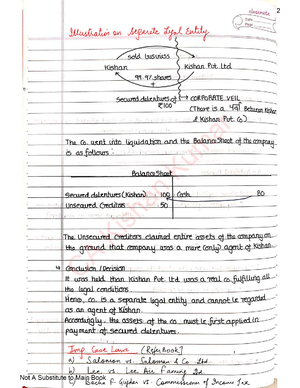 classmate
2
Illustration on Separate Legal Entity
sold business
Kishan
Kishan Pvt. Ltd
99.9% shares
Secured debentures of
₹100
→ CORPORATE VEIL
(There is a पर्दा Between Kishan
& Kishan Pvt. Co)
The Co. went into liquidation and the Balance Sheet of the company
is as follows:
Balance Sheet
Secured debentures (Kishan) 100 Cash 80
Unsecured Creditors 50
The Unsecured Creditors claimed entire assets of the company on
the ground that company was a mere (only) agent of Kishan.
Conclusion / Decision
It was held than Kishan Pvt. Ltd was a real co. fulfilling all
the legal conditions
Hence, co. is a separate legal entity and cannot be regarded
as an agent of Kishan.
Accordingly, the assets of the co. must be first applied in
payment of secured debentures.
Imp. Case Laws (Refer Book)
a) Salomon vs. Salomon & Co Ltd
b) Lee vs Lee Air Faming Ltd
Bacha F. Guzdar vs. Commissioner of Income Tax
Not A Substitute to Main Book